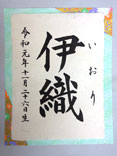 いおり
伊織
令和元年十一月二十六日生